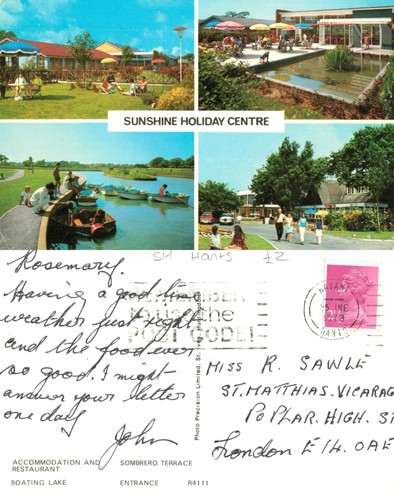 SUNSHINE HOLIDAY CENTRE
SH Hants 72
Rosemary.
Having a good time
weather just right
and the food ever
so good. I might
answer your letter
one day
John
REMEMBER
to use the
POST CODE!
HAVANT
HANTS
Photo Precision Limited, St. Ives, Huntingdon
MISS R. SAWLE
ST. MATTHIAS. VICARAG
POPLAR. HIGH. S
London E14. OAE
ACCOMMODATION AND
RESTAURANT
SOMBRERO TERRACE
BOATING LAKE
ENTRANCE R4111